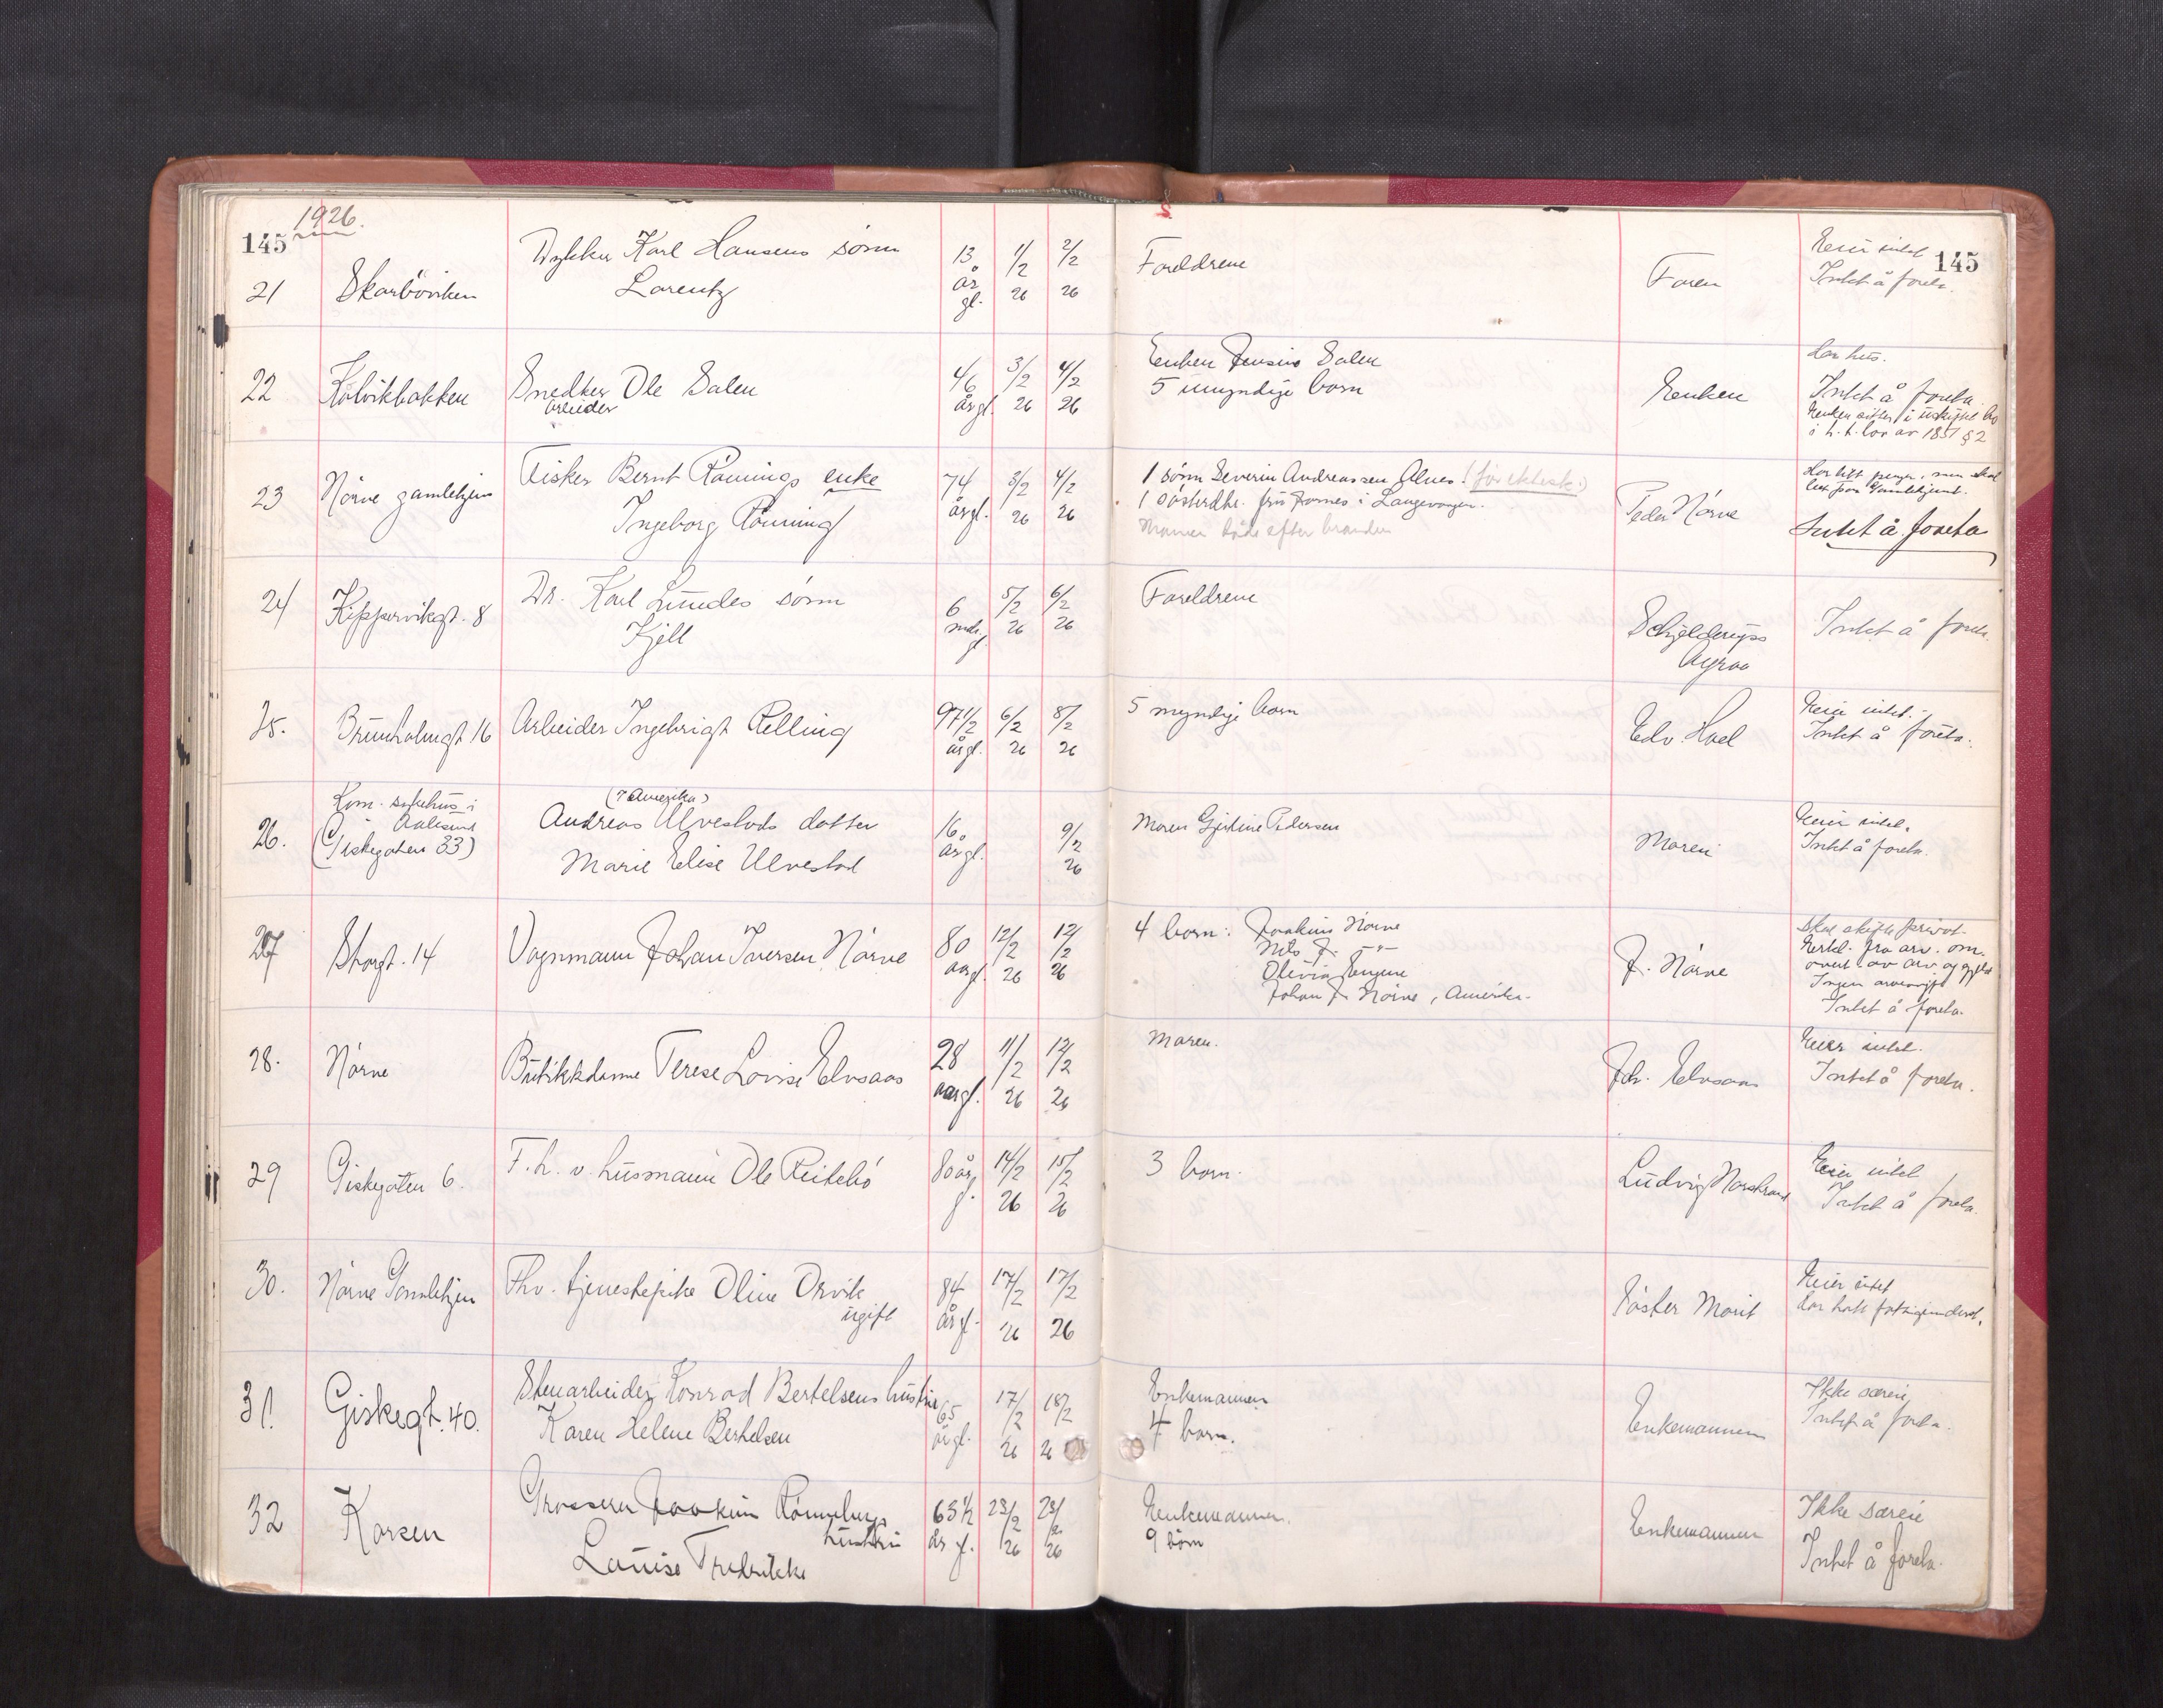 1926.
145
145
21 Skarböviken Dykker Karl Hansens sönn
Lorentz
13 år gl. 1/2 26 2/2 26
Foreldrene
Faren
Eier intet
Intet å foreta.
22 Kolvikbakken Snedker Ole Salen
arbeider
46 år gl. 3/2 26 4/2 26
Enken Jensine Salen
5 umyndige born
Enken
Har hus.
Intet å foreta
Enken sitter i uskiftet bo
i h. t. lov av 1851 § 2
23 Nörve gamlehjem Fisker Bernt Rönnings enke
Ingeborg Rönning
74 år gl. 3/2 26 4/2 26
1 sönn Severin Andreassen Alnes (för ektesk.)
1 sösterdtr. fru Fornes i Langevaagen.
Mannen döde efter branden
Peder Nörve
Har litt penger, men skal
Intet å foreta
24 Kippervikgt. 8 Dr. Karl Lundes sönn
Kjell
6 mdr. gl. 5/2 26 6/2 26
Foreldrene
Schjelderups
Byraa
Intet å foreta.
25. Brunholmgt 16 Arbeider Ingebrigt Relling
97 1/2 år gl. 6/2 26 8/2 26
5 myndige born
Edv. Hoel
Eier intet.
Intet å foreta.
26. Kom. sykehus i
Aalesund
(Giskegaten 33)
(i Amerika)
Andreas Ulvestads datter
Marie Elise Ulvestad
16 år gl. 9/2 26
Moren Gjertine Pedersen
Moren
Eier intet.
Intet å foreta.
27 Storgt. 14 Vognmann Johan Iversen Nörve
80 aar gl. 12/2 26 12/2 26
4 born: Joakim Nörve
Nils J. -"-
Olivia
Johan J. Nörve, Amerika.
J. Nörve
Skal skifte privat
Erkl. fra arv. om
overt. av arv og gjeld
Ingen arveavgift
Intet å foreta.
28. Nörve Butikkdame Terese Lovise Elvsaas
28 aar gl. 11/2 26 12/2 26
Moren.
Joh. Elvsaas
Eier intet.
Intet å foreta.
29 Giskegaten 6. F. h. v. husmann Ole Reitebö
80 år g. 14/2 26 15/2 26
3 born.
Ludvig Norstrand
Eier intet
Intet å foreta.
30. Nörve Gamlehjem Fhv. tjenestepike Oline Orvik
ugift
84 år gl. 17/2 26 17/2 26
Söster Marit
Eier intet
Har hatt fattigunderst.
31. Giskegt. 40. Stenarbeider Konrad Bertelsens hustru
Karen Helene Bertelsen
65 år gl. 17/2 26 18/2 26
Enkemannen
4 born.
Enkemannen
Ikke særeie
Intet å foreta.
32 Korsen Grosserer Joakim Rönnebergs
hustru
Louise Fredrikke
63 1/2 år g. 23/2 26 23/2 26
Enkemannen.
9 börn
Enkemannen
Ikke særeie
Intet å foreta.